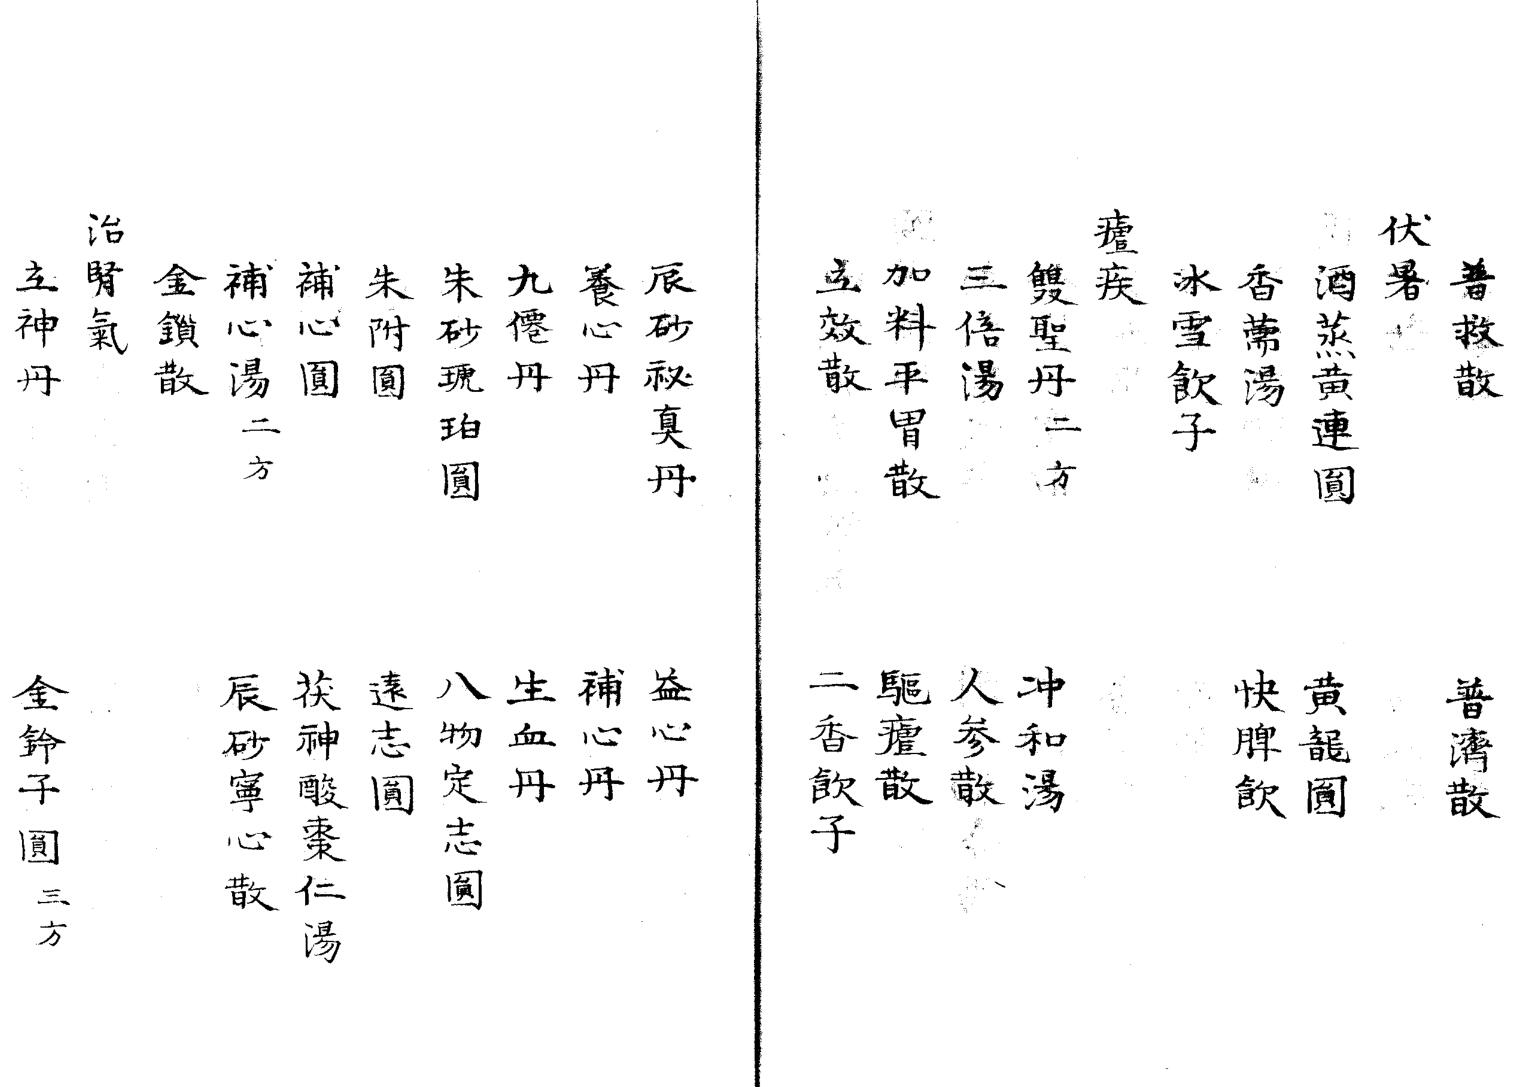 普救散　普濟散
伏暑
酒蒸黃連圓　黃龍圓
香薷湯　快脾飲
冰雪飲子
瘧疾
雙聖丹二方　冲和湯
三倍湯　人参散
加料平胃散　驅瘧散
立效散　二香飲子
辰砂祕真丹　益心丹
養心丹　補心丹
九僊丹　生血丹
朱砂琥珀圓　八物定志圓
朱附圓　遠志圓
補心圓　茯神酸棗仁湯
補心湯二方　辰砂寧心散
金鎖散
治腎氣
立神丹　金鈴子圓三方